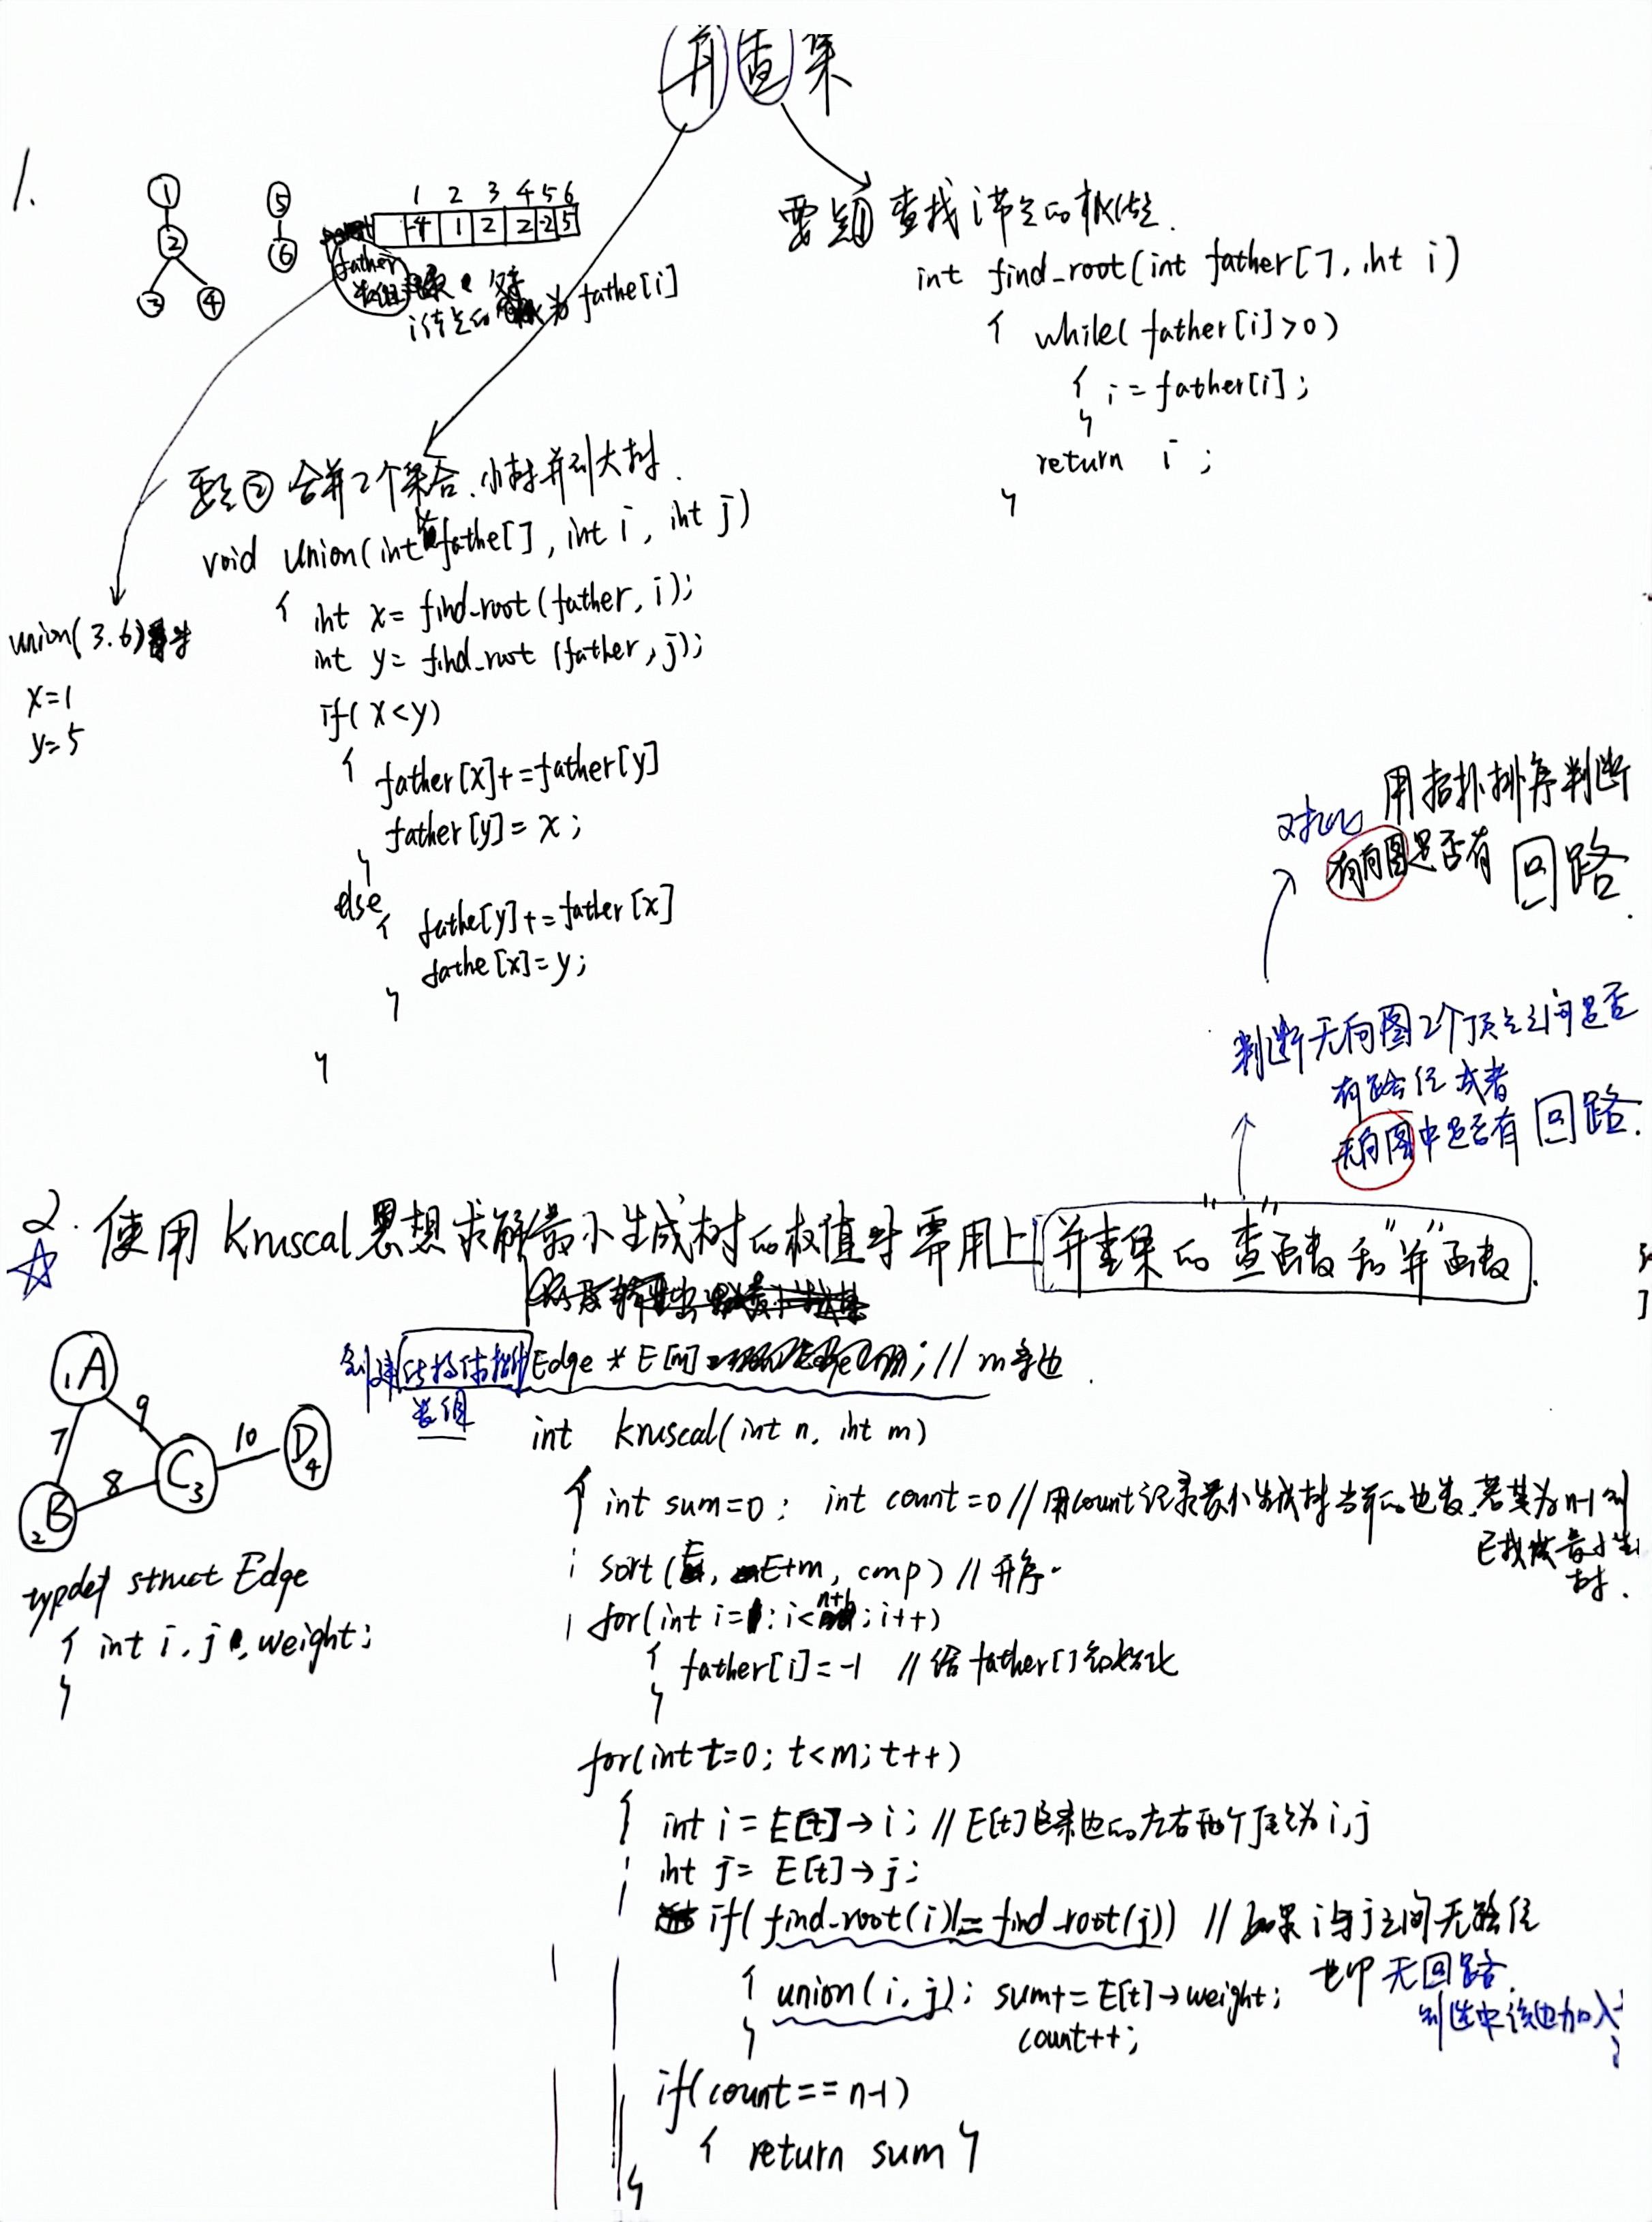 并查集
1.
1
2
3
4
5
6
1 2 3 4 5 6
-4 1 2 2 -2 5
father
数组
i结点的 为 fathe[i]
要点① 查找i节点的根结点.
int find_root(int father[], int i)
{ while( father[i]>0)
{ i = father[i];
}
return i ;
}
要点② 合并2个集合.小树并到大树.
void union(int fathe[], int i, int j)
{ int x= find_root(father, i);
int y= find_root (father, j);
if( x<y)
{ father[x]+=father[y]
father[y]= x;
}
else
{ fathe[y]+=father[x]
fathe[x]=y;
}
}
union(3.6)
x=1
y=5
对比 用拓扑排序判断
有向图是否有 回路.
判断无向图2个顶点之间是否
有路径 或者
无向图中是否有 回路.
2. 使用 Kruscal思想求解最小生成树的权值时需用上并查集的 "查"函数和"并"函数.
创建结构体指针 Edge * E[m] ; // m条边.
数组
A 1
B 2
C 3
D 4
7
9
8
10
int kruscal(int n, int m)
{ int sum=0; int count=0 //用count记录最小生成树当前的边数.若其为n-1则
已找成最小生
树.
sort (E, E+m, cmp) // 升序.
for(int i=1; i<n+1; i++)
{ father[i]=-1 // 给father[]初始化
}
typdef struct Edge
{ int i, j, weight;
}
for(int t=0; t<m; t++)
{ int i = E[t]→i; // E[t]这条边的左右两个顶点为i,j
int j= E[t]→j;
if( find_root(i)!=find_root(j)) // 如果i与j之间无路径
也即 无回路.
则选中该边加入
{ union(i, j); sum+= E[t]→weight;
count++;
}
if(count==n-1)
{ return sum }
}